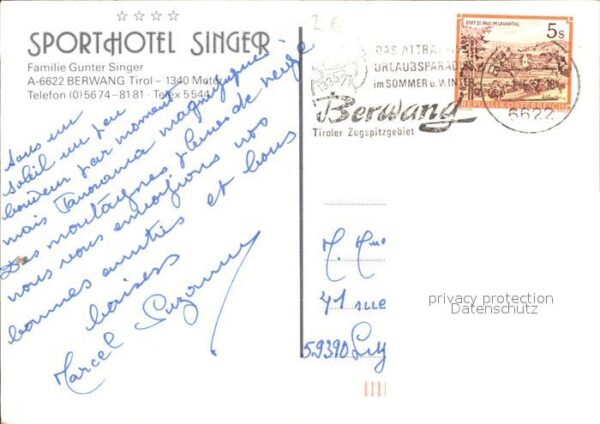 SPORTHOTEL SINGER
Familie Günter Singer
A-6622 BERWANG Tirol – 1340 Meter
Telefon (0) 56 74 – 81 81 · Telex 5544
Sous un
soleil un peu
boudeur par moment
mais Panorama magnifique
Des montagnes pleines de neige
nous vous envoyons nos
bonnes amitiés et bons
baisers
Marcel Suzanne
26
DAS ATTRAKTIVE
URLAUBSPARADIES
im SOMMER u. WINTER
Berwang
Tiroler Zugspitzgebiet
6622
STIFT ST. PAUL IM LAVANTTAL
5s
REPUBLIK ÖSTERREICH
M. Mme
41 rue
59390 Lys
privacy protection
Datenschutz